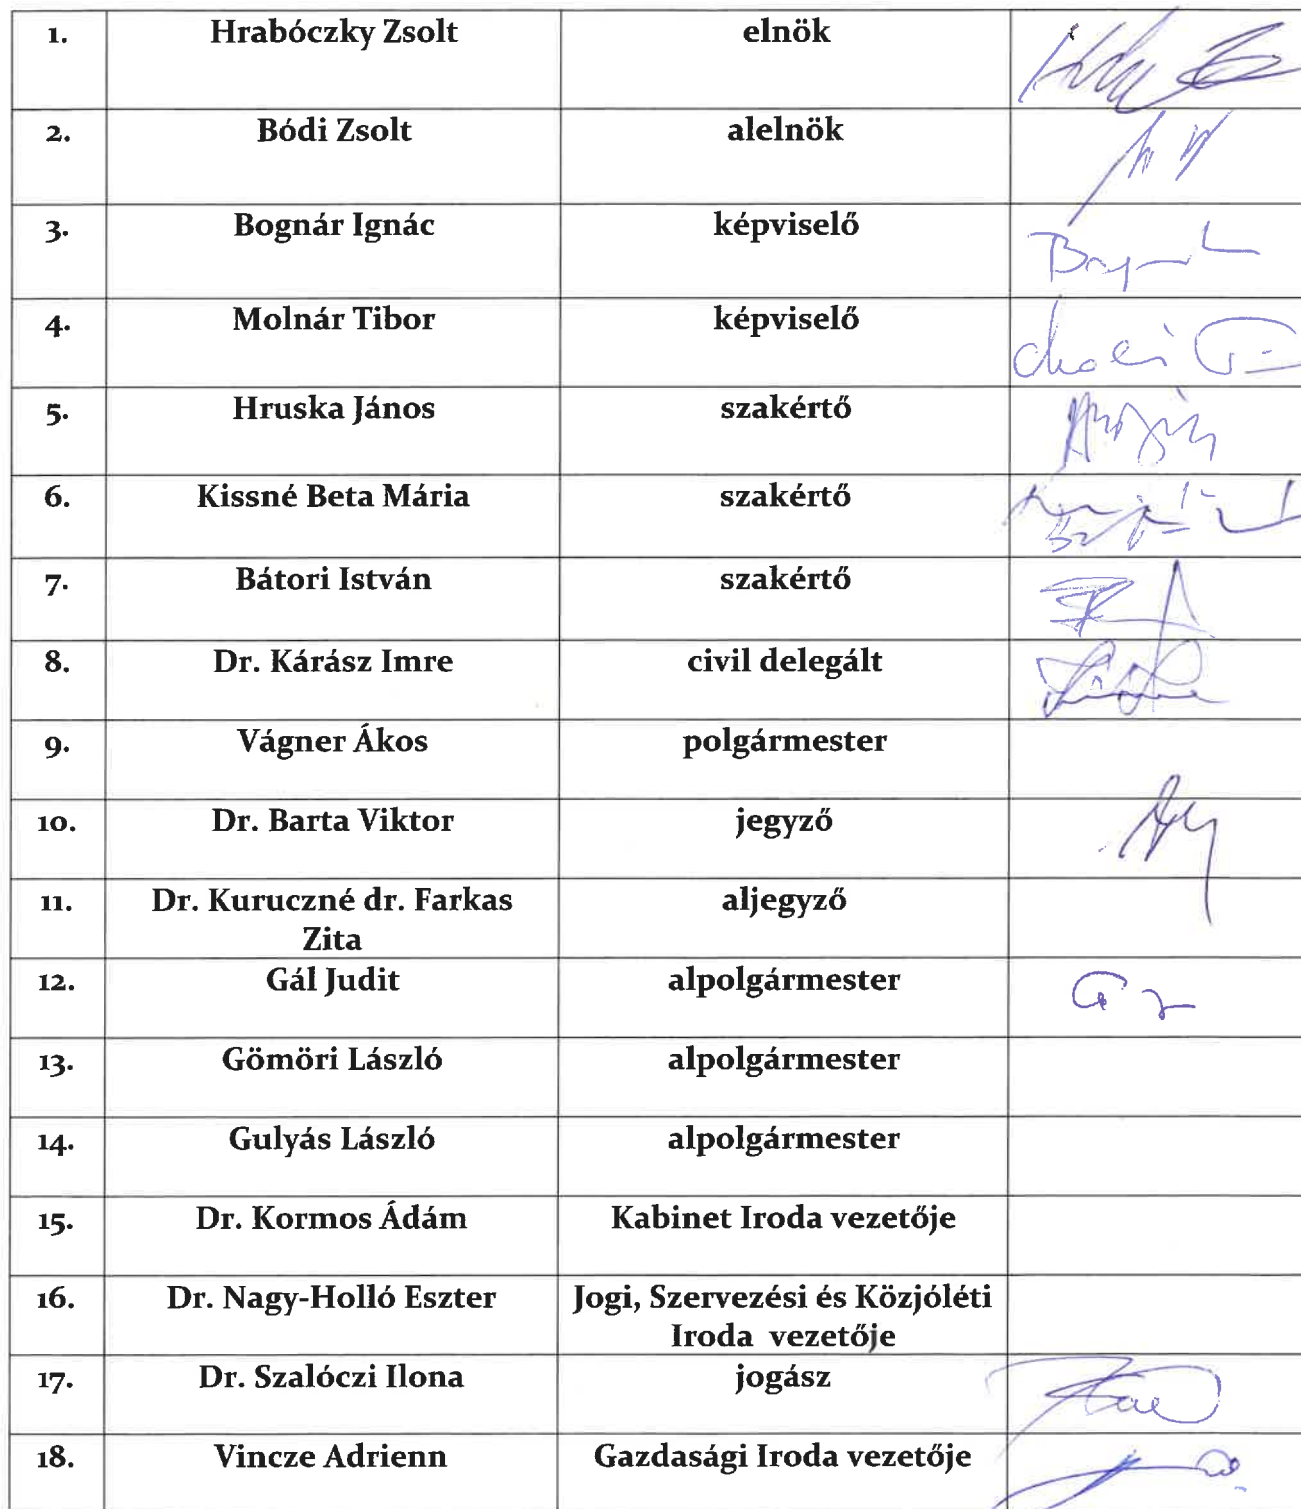 1. Hrabóczky Zsolt elnök
2. Bódi Zsolt alelnök
3. Bognár Ignác képviselő
4. Molnár Tibor képviselő
5. Hruska János szakértő
6. Kissné Beta Mária szakértő
7. Bátori István szakértő
8. Dr. Kárász Imre civil delegált
9. Vágner Ákos polgármester
10. Dr. Barta Viktor jegyző
11. Dr. Kuruczné dr. Farkas aljegyző
Zita
12. Gál Judit alpolgármester
13. Gömöri László alpolgármester
14. Gulyás László alpolgármester
15. Dr. Kormos Ádám Kabinet Iroda vezetője
16. Dr. Nagy-Holló Eszter Jogi, Szervezési és Közjóléti
Iroda vezetője
17. Dr. Szalóczi Ilona jogász
18. Vincze Adrienn Gazdasági Iroda vezetője